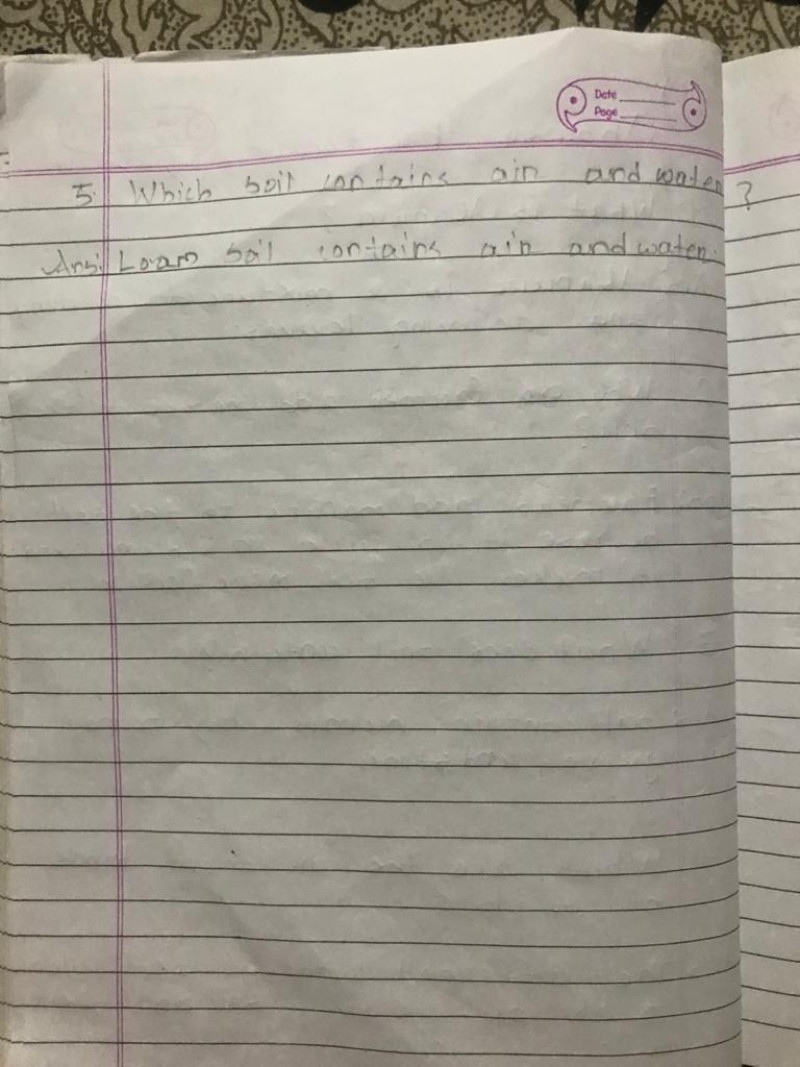 Date
Page
5. Which soil contains air and water ?
Ans: Loam soil contains air and water.